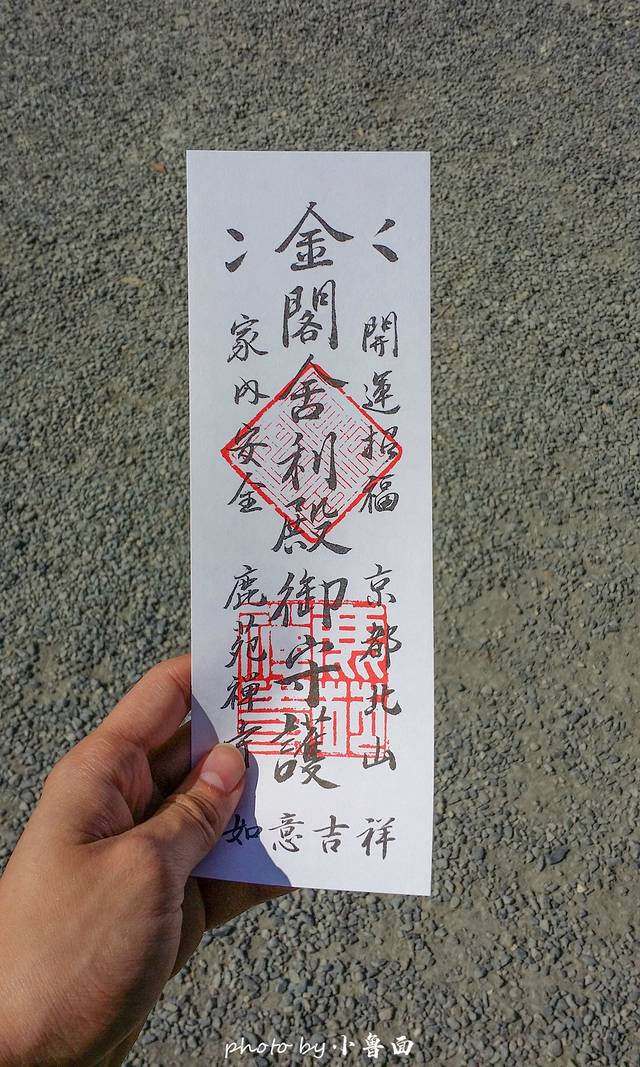 開運招福 京都北山
金閣舍利殿御守護
家内安全 鹿苑禅寺
如意吉祥
photo by 小鲁面